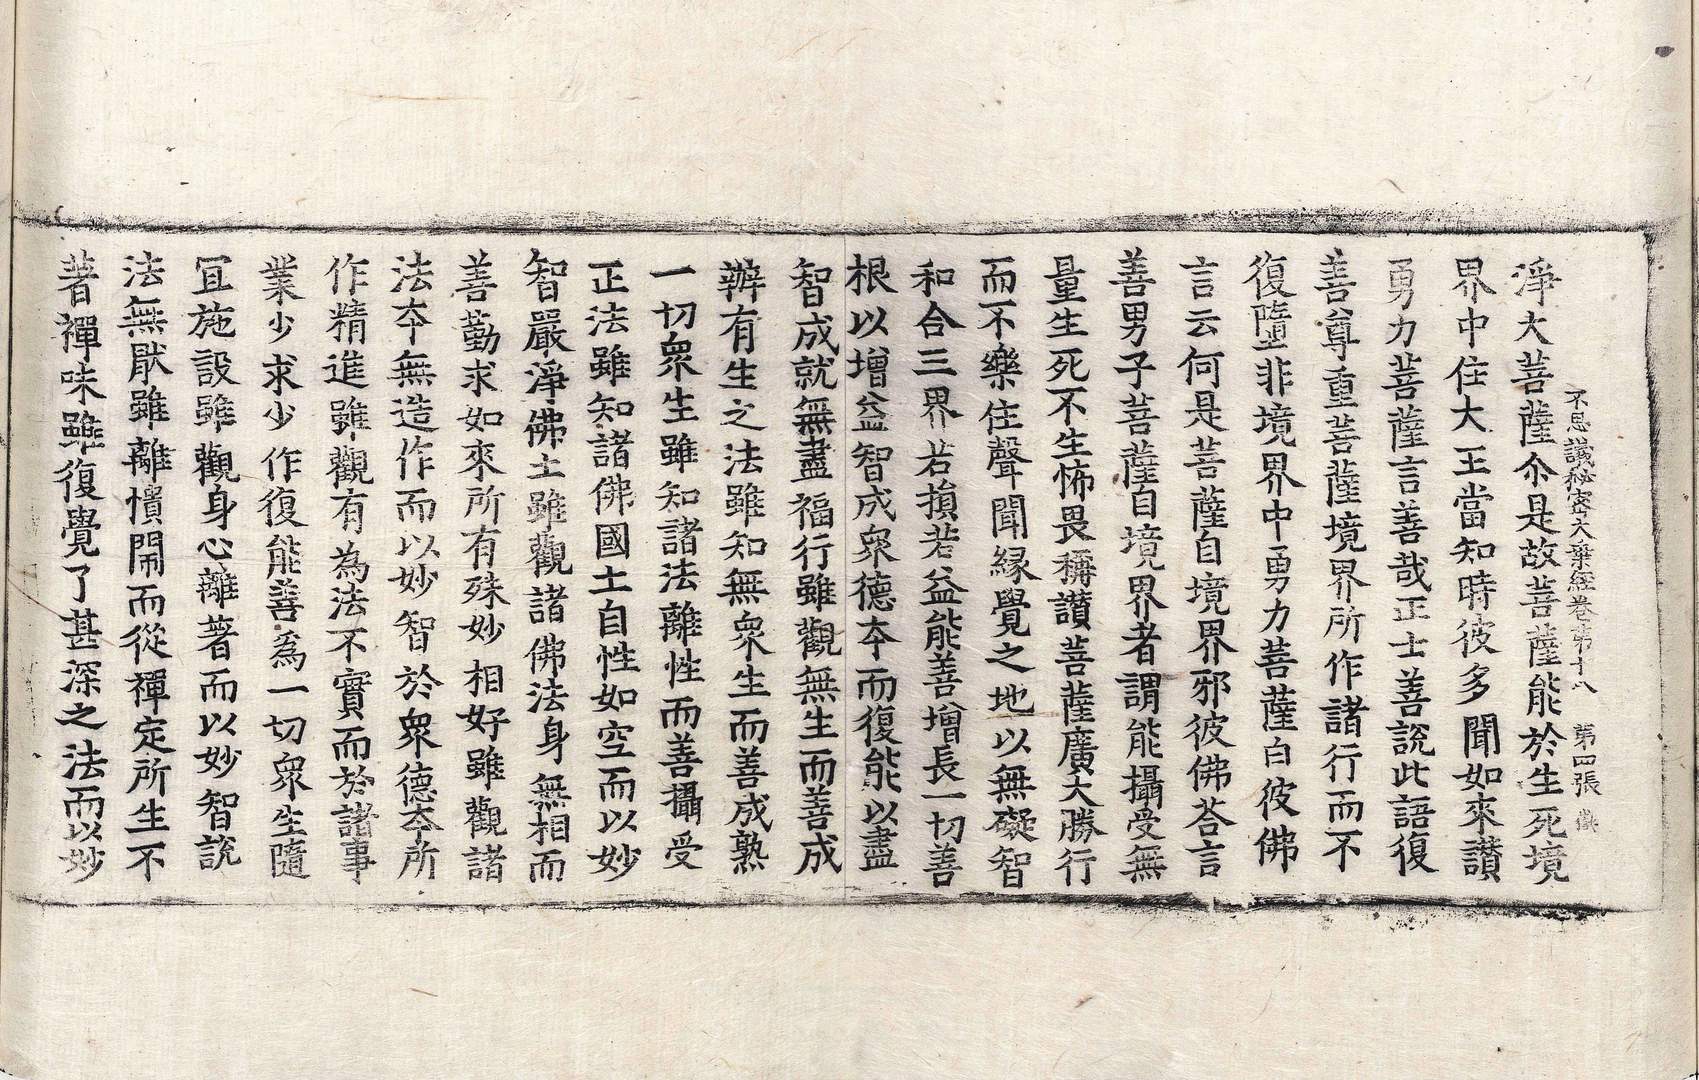 不思議秘密大乘經卷第十八　第四張
淨大菩薩尒是故菩薩能於生死境
界中住大王當知時彼多聞如來讃
勇力菩薩言善哉正士善說此語復
善尊重菩薩境界所作諸行而不
復墮非境界中勇力菩薩白彼佛
言云何是菩薩自境界邪彼佛荅言
善男子菩薩自境界者謂能攝受無
量生死不生怖畏稱讃菩薩廣大勝行
而不樂住聲聞縁覺之地以無礙智
和合三界若損若益能善增長一切善
根以增益智成衆德夲而復能以盡
智成就無盡福行雖觀無生而善成
辦有生之法雖知無衆生而善成熟
一切衆生雖知諸法離性而善攝受
正法雖知諸佛國土自性如空而以妙
智嚴淨佛土雖觀諸佛法身無相而
善勤求如來所有殊妙相好雖觀諸
法夲無造作而以妙智於衆德夲所
作精進雖觀有為法不實而於諸事
業少求少作復能善為一切衆生隨
冝施設雖觀身心離著而以妙智說
法無猒雖離憒閙而從禪定所生不
著禪味雖復覺了甚深之法而以妙